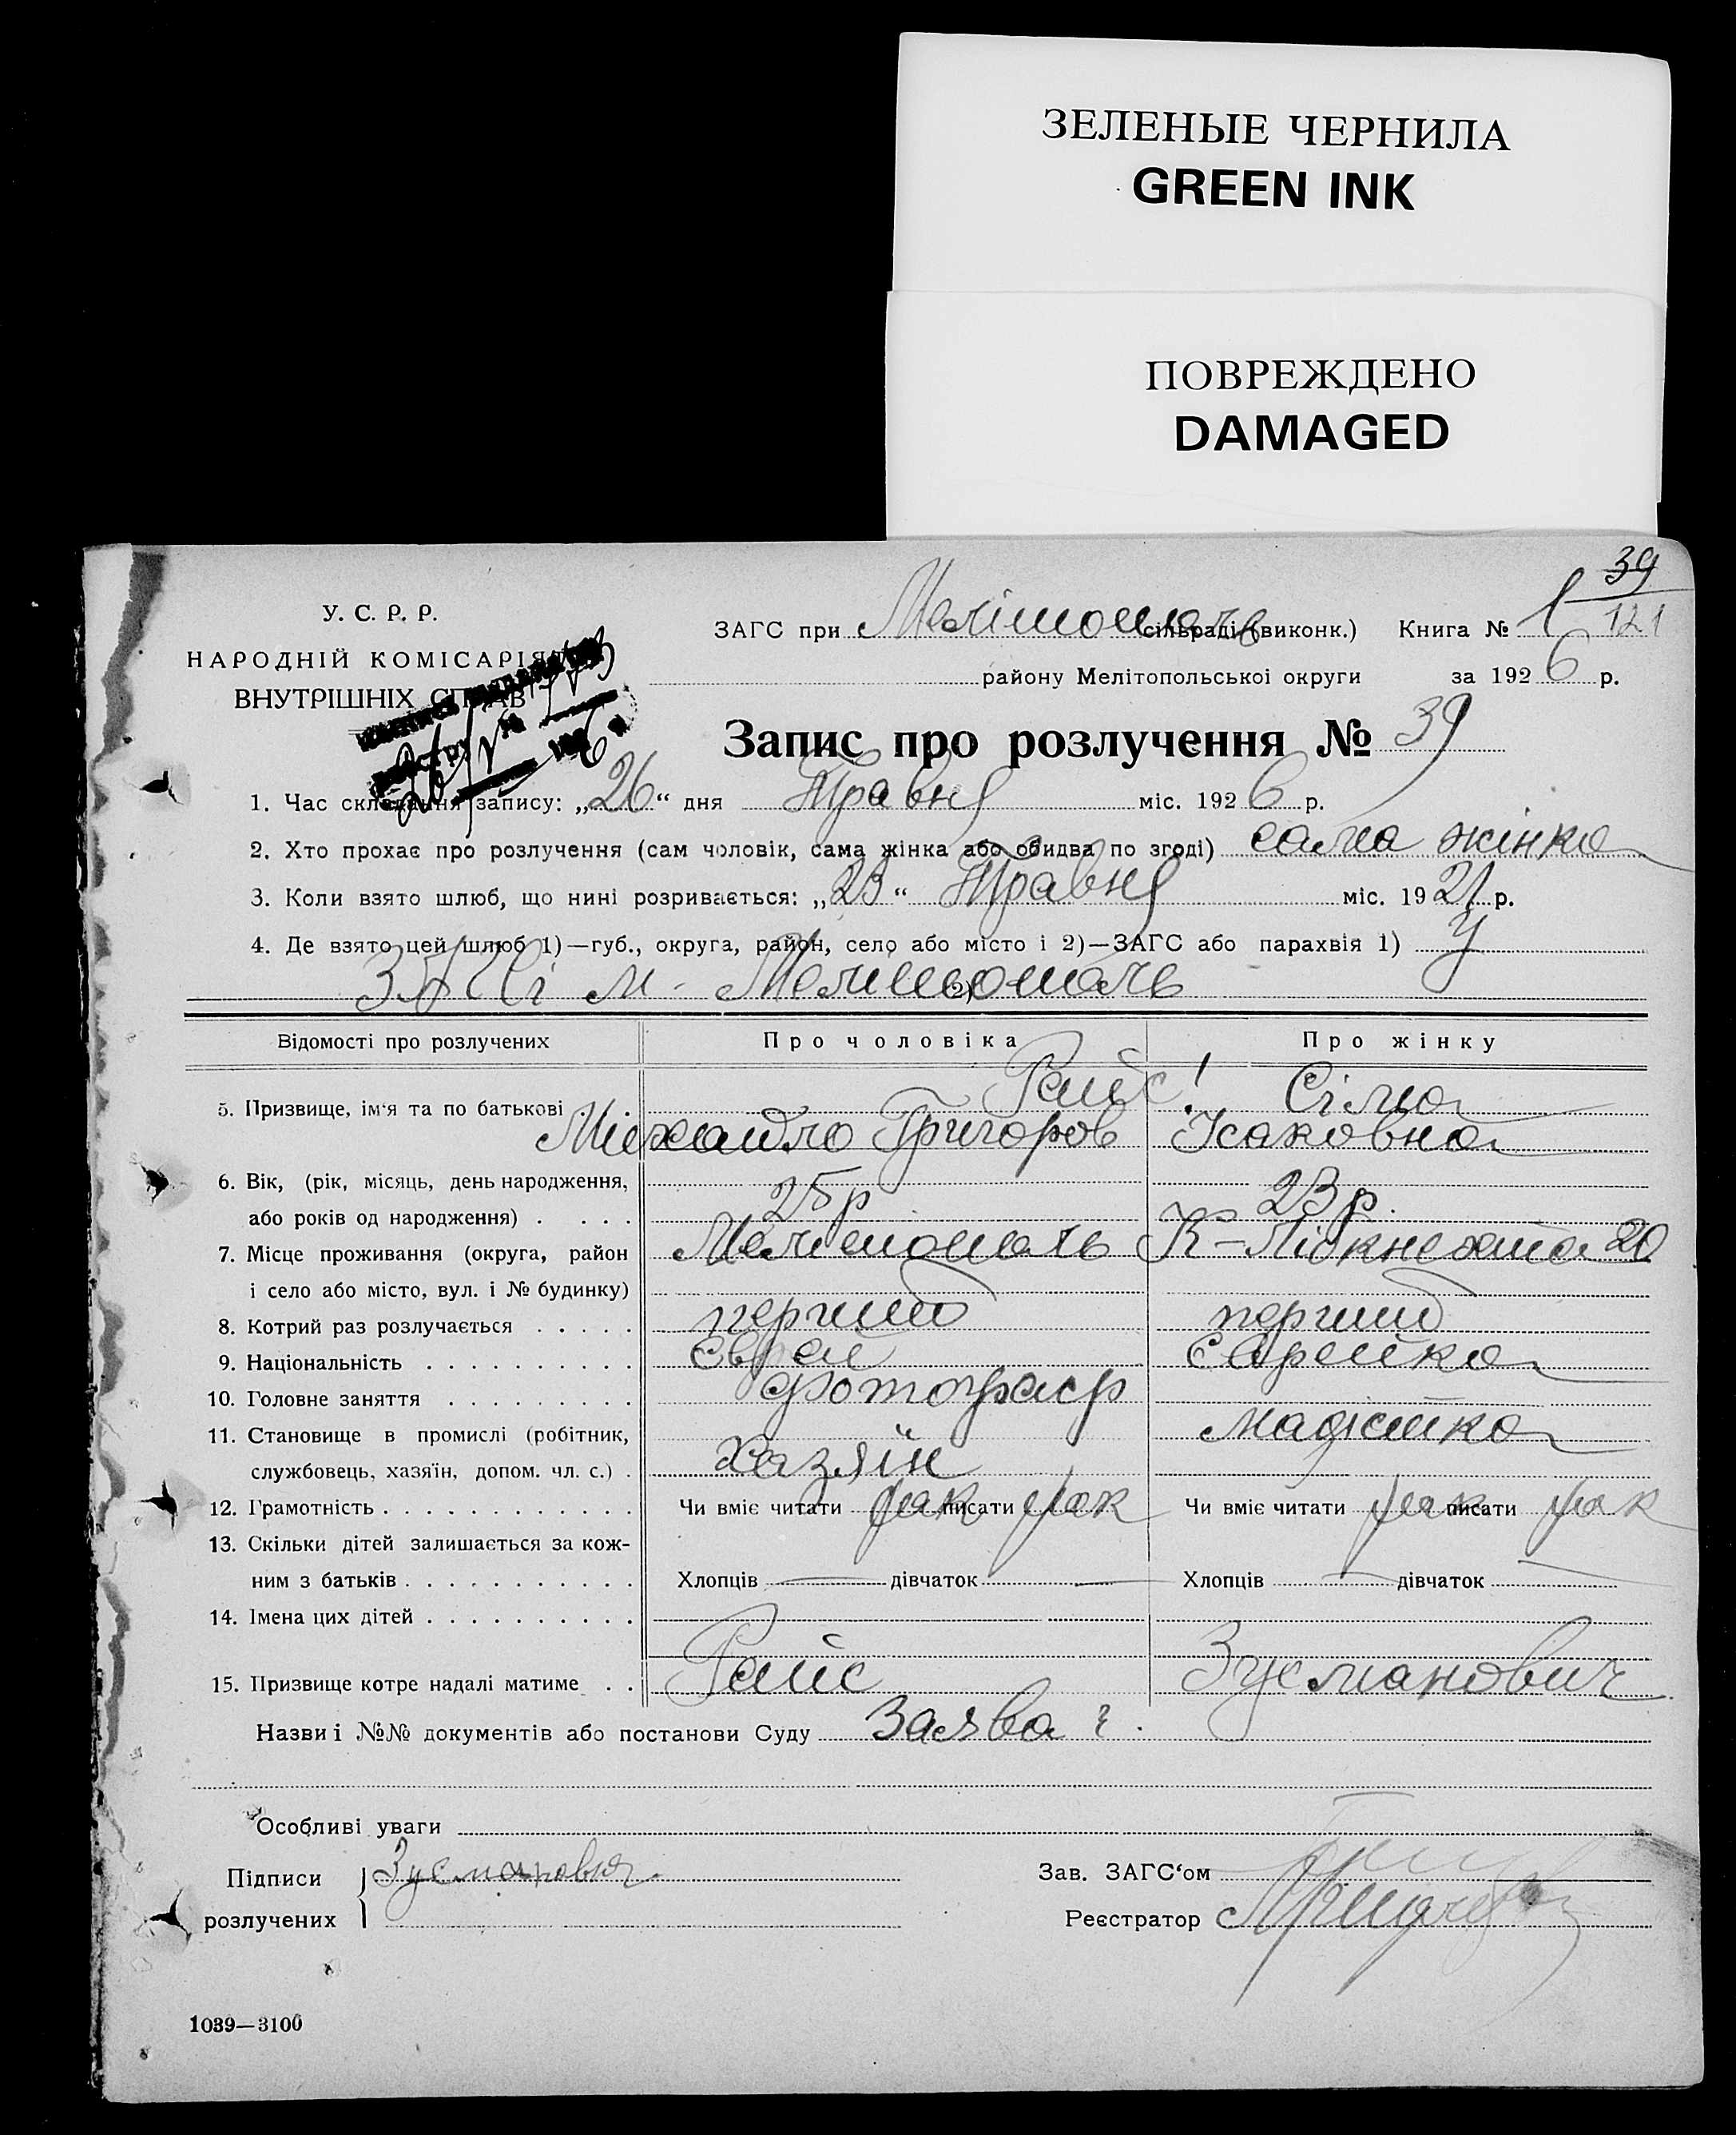 ЗЕЛЕНЫЕ ЧЕРНИЛА
GREEN INK
ПОВРЕЖДЕНО
DAMAGED
39
121
У. С. Р. Р.
НАРОДНІЙ КОМІСАРІЯТ
ВНУТРІШНІХ СПРАВ
ЗАГС при Мелітополь сільраді (виконк.) Книга № 1
району Мелітопольскої округи за 1926 р.
Запис про розлучення № 39
1. Час складання запису: „26“ дня Травня міс. 1926 р.
2. Хто прохає про розлучення (сам чоловік, сама жінка або обидва по згоді) сама жінка
3. Коли взято шлюб, що нині розривається: „23“ Травня міс. 1921 р.
4. Де взято цей шлюб 1)—губ., округа, район, село або місто і 2)—ЗАГС або парахвія 1) у
ЗАГСі м. Мелітополь
Відомості про розлучених Про чоловіка Про жінку
5. Призвище, ім'я та по батькові Райс! Сіма
Михайло Григоров Ісаковна
6. Вік, (рік, місяць, день народження,
або років од народження) 25 р 23 р.
7. Місце проживання (округа, район Мелітополь К-Лібкнехта 20
і село або місто, вул. і № будинку)
8. Котрий раз розлучається перший перший
9. Національність Єврей Єврейка
10. Головне заняття фотограф
11. Становище в промислі (робітник, модістка
службовець, хазяїн, допом. чл. с.) Хазяїн
12. Грамотність Чи вміє читати так писати так Чи вміє читати так писати так
13. Скільки дітей залишається за кож-
ним з батьків Хлопців — дівчаток — Хлопців — дівчаток —
14. Імена цих дітей
15. Призвище котре надалі матиме Райс Зусманович
Назви і №№ документів або постанови Суду Заява
Особливі уваги
Підписи Зусманович
розлучених
Зав. ЗАГС‘ом
Реєстратор
1039—3100